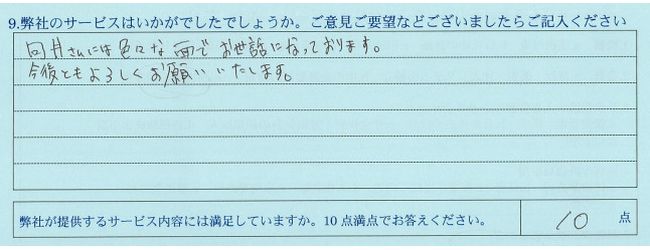 9.弊社のサービスはいかがでしたでしょうか。ご意見ご要望などございましたらご記入ください
向井さんには色々な面でお世話になっております。
今後ともよろしくお願いいたします。
弊社が提供するサービス内容には満足していますか。10点満点でお答えください。 10 点